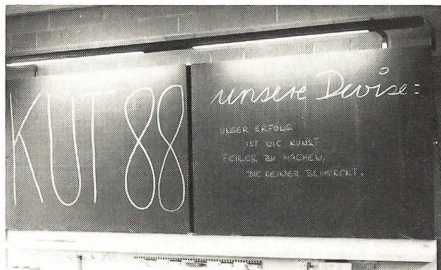 KUT 88
unsere Devise:
UNSER ERFOLG
IST DIE KUNST
FEHLER ZU MACHEN,
DIE KEINER BEMERKT.